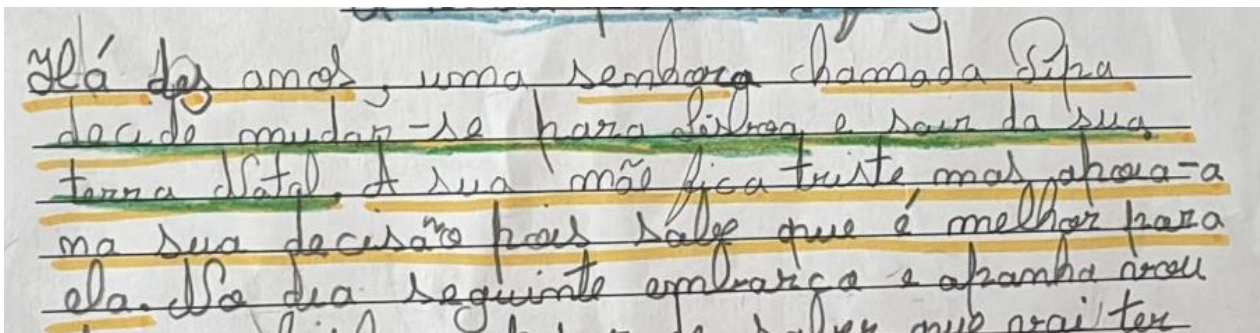 Há dez anos, uma senhora chamada Pipa
decide mudar-se para Lisboa e sair da sua
terra Natal. A sua mãe fica triste mas apoia-a
na sua decisão pois sabe que é melhor para
ela. No dia seguinte embarca e apanha
saber que vai ter